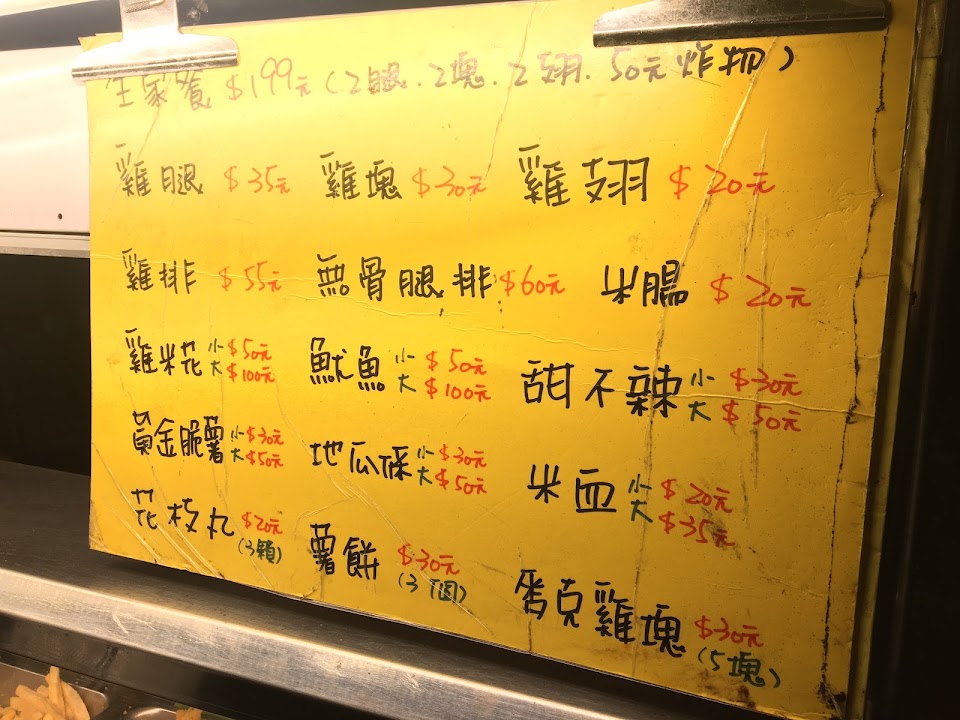 全家餐 $199元(2腿.2塊.2翅.50元炸物)
雞腿 $35元 雞塊 $30元 雞翅 $20元
雞排 $55元 無骨腿排 $60元 米腸 $20元
雞米花 小 $50元 大 $100元
魷魚 小 $50元 大 $100元
甜不辣 小 $30元 大 $50元
黃金脆薯 小 $30元 大 $50元
地瓜條 小 $30元 大 $50元
米血 小 $20元 大 $35元
花枝丸 $20元 (3顆)
薯餅 $30元 (3個)
麥克雞塊 $30元 (5塊)